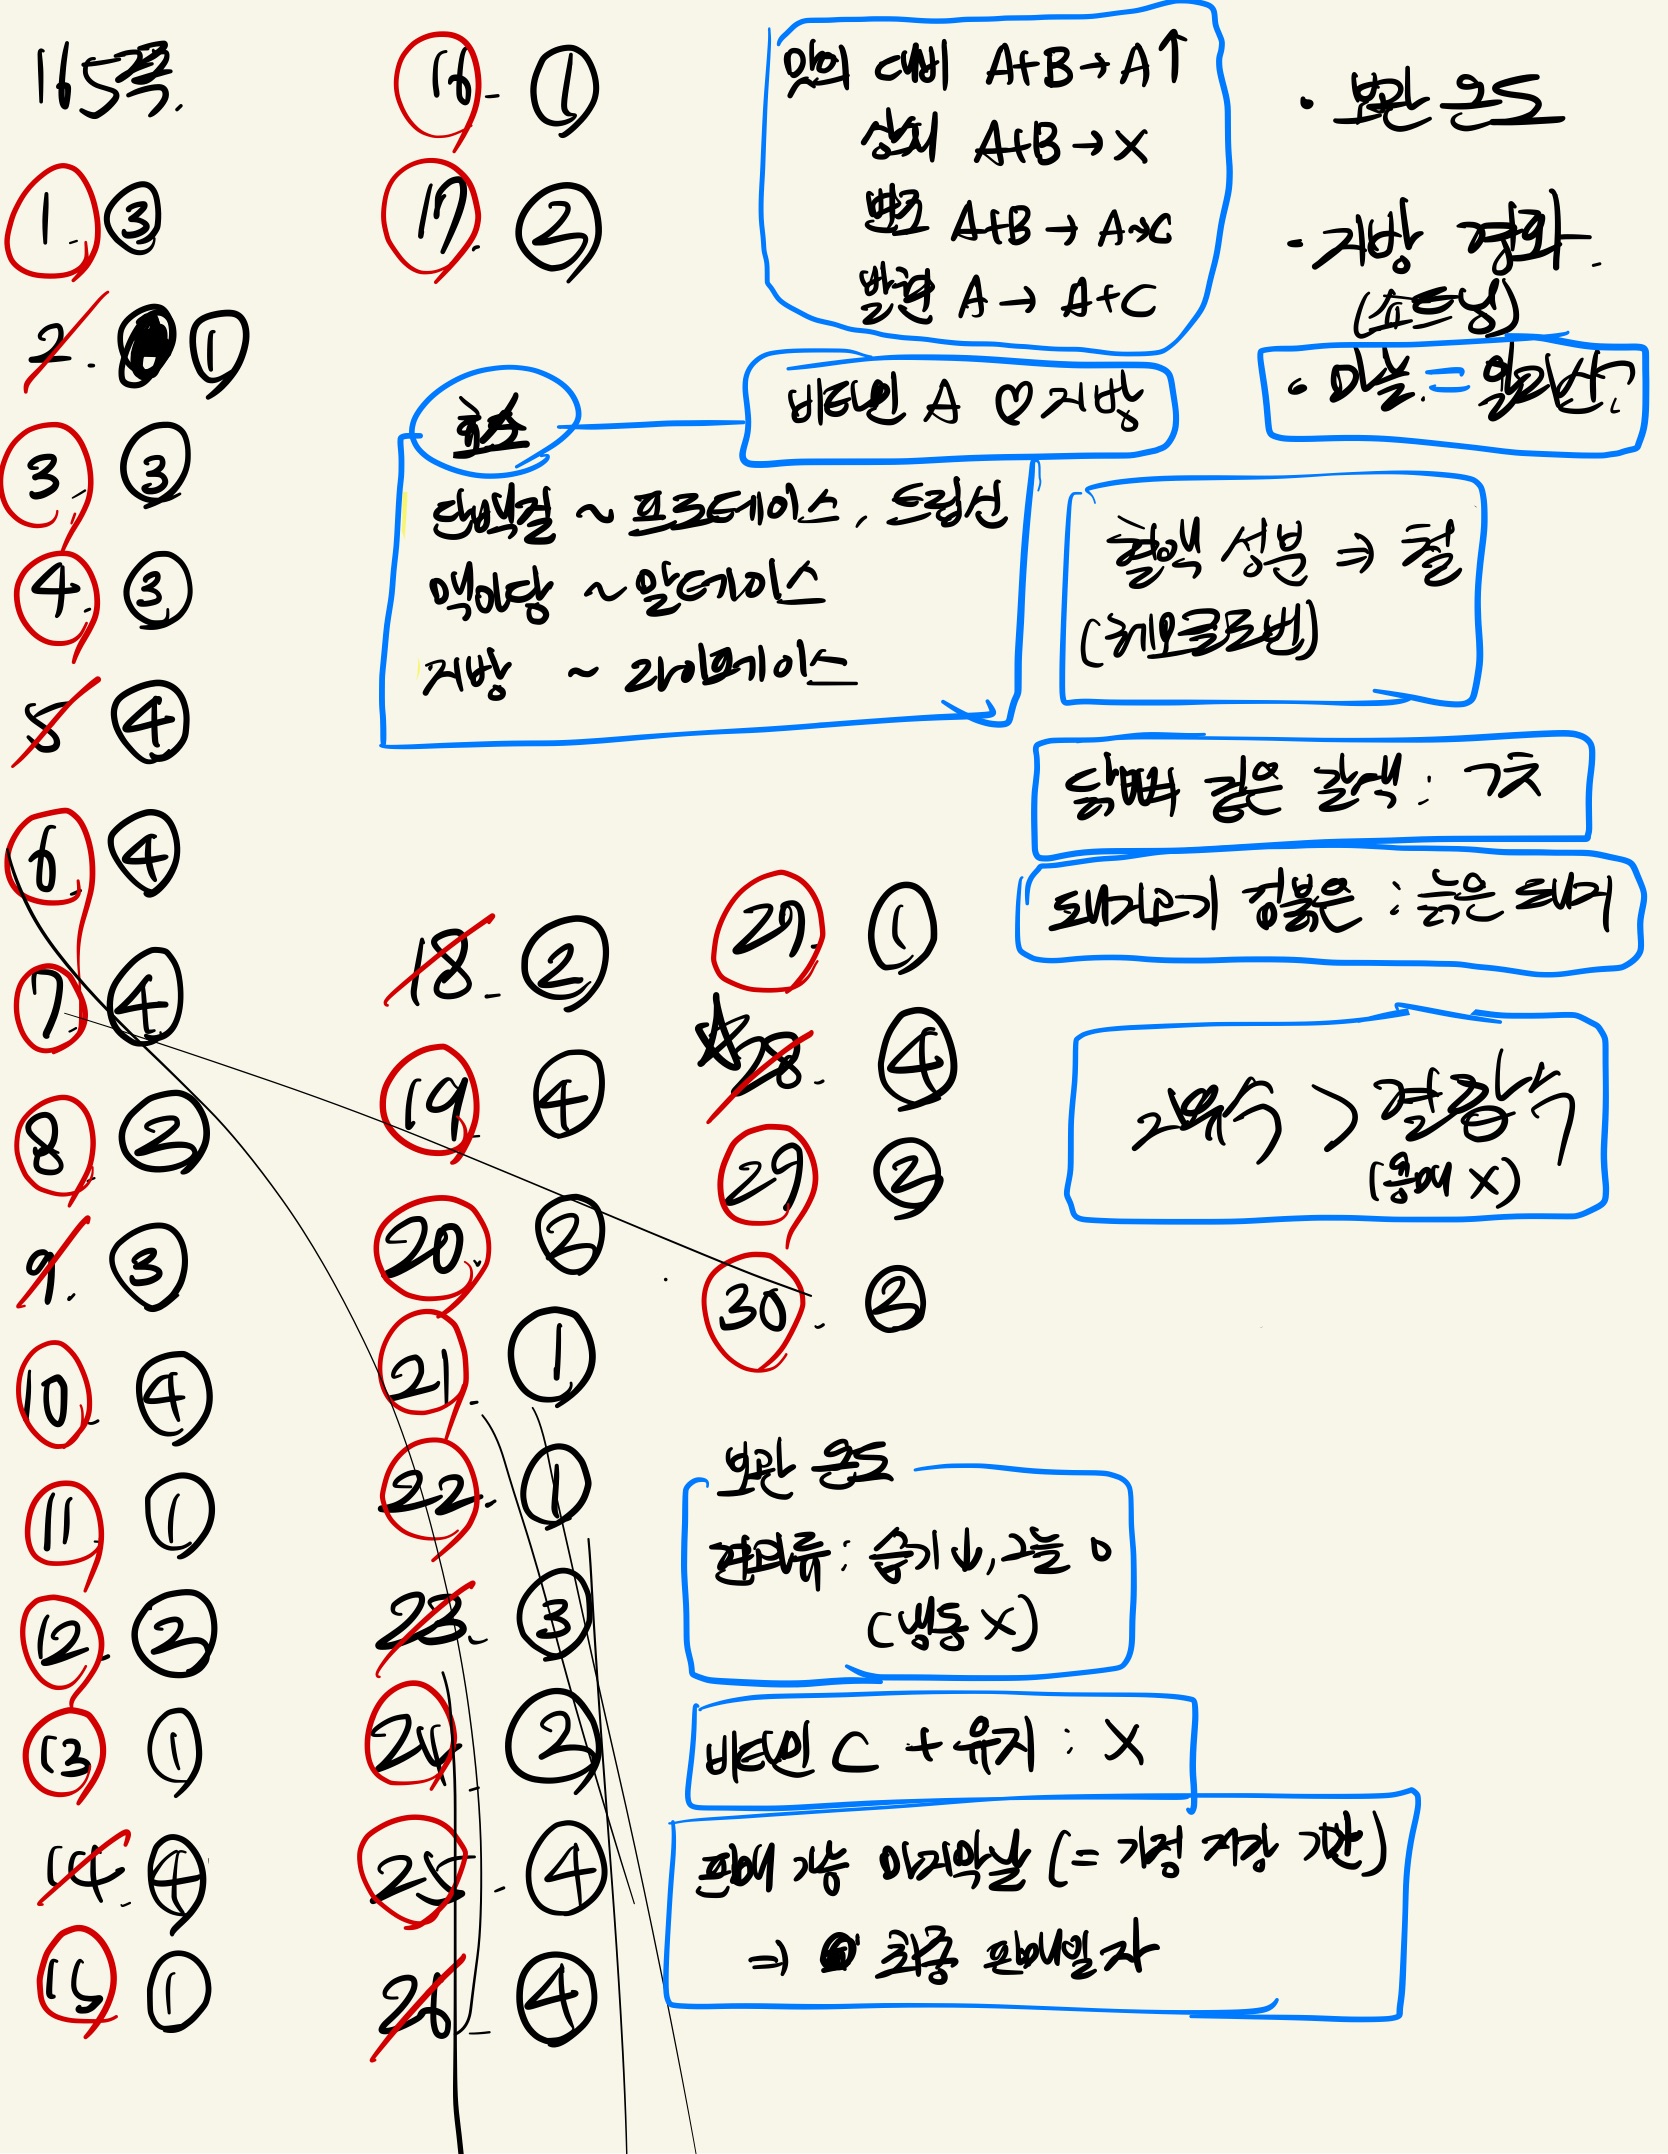 165쪽.
1. ③
2. ①
3. ③
4. ③
5 ④
6. ④
7. ④
8. ②
9. ③
10. ④
11. ①
12. ②
13. ①
14. ④
15 ①
16. ①
17. ②
18. ②
19. ④
20. ②
21. ①
22. ①
23. ③
24. ②
25. ④
26. ④
29. ①
☆28. ④
29. ②
30. ②
맛의 대비 A+B→A↑
상쇄 A+B→X
변조 A+B→A→C
발현 A→A+C
· 보관 온도
· 지방 경화.
(쇼트닝)
· 마늘 = 알리신
효소
비타민 A ♡ 지방
단백질 ~ 프로테이스, 트립신
맥아당 ~ 말테이스
지방 ~ 라이페이스
혈액 성분 ⇒ 철
(헤모글로빈)
닭뼈 짙은 갈색: 
돼지고기 검붉은 : 늙은 돼지
자유수 > 결합수
(용매 X)
보관 온도
견과류: 습기↓, 그늘 o
(냉동 X)
비타민 C + 유지 : X
판매 가능 마지막날 (= 가정 저장 기간)
⇒ 최종 판매일자